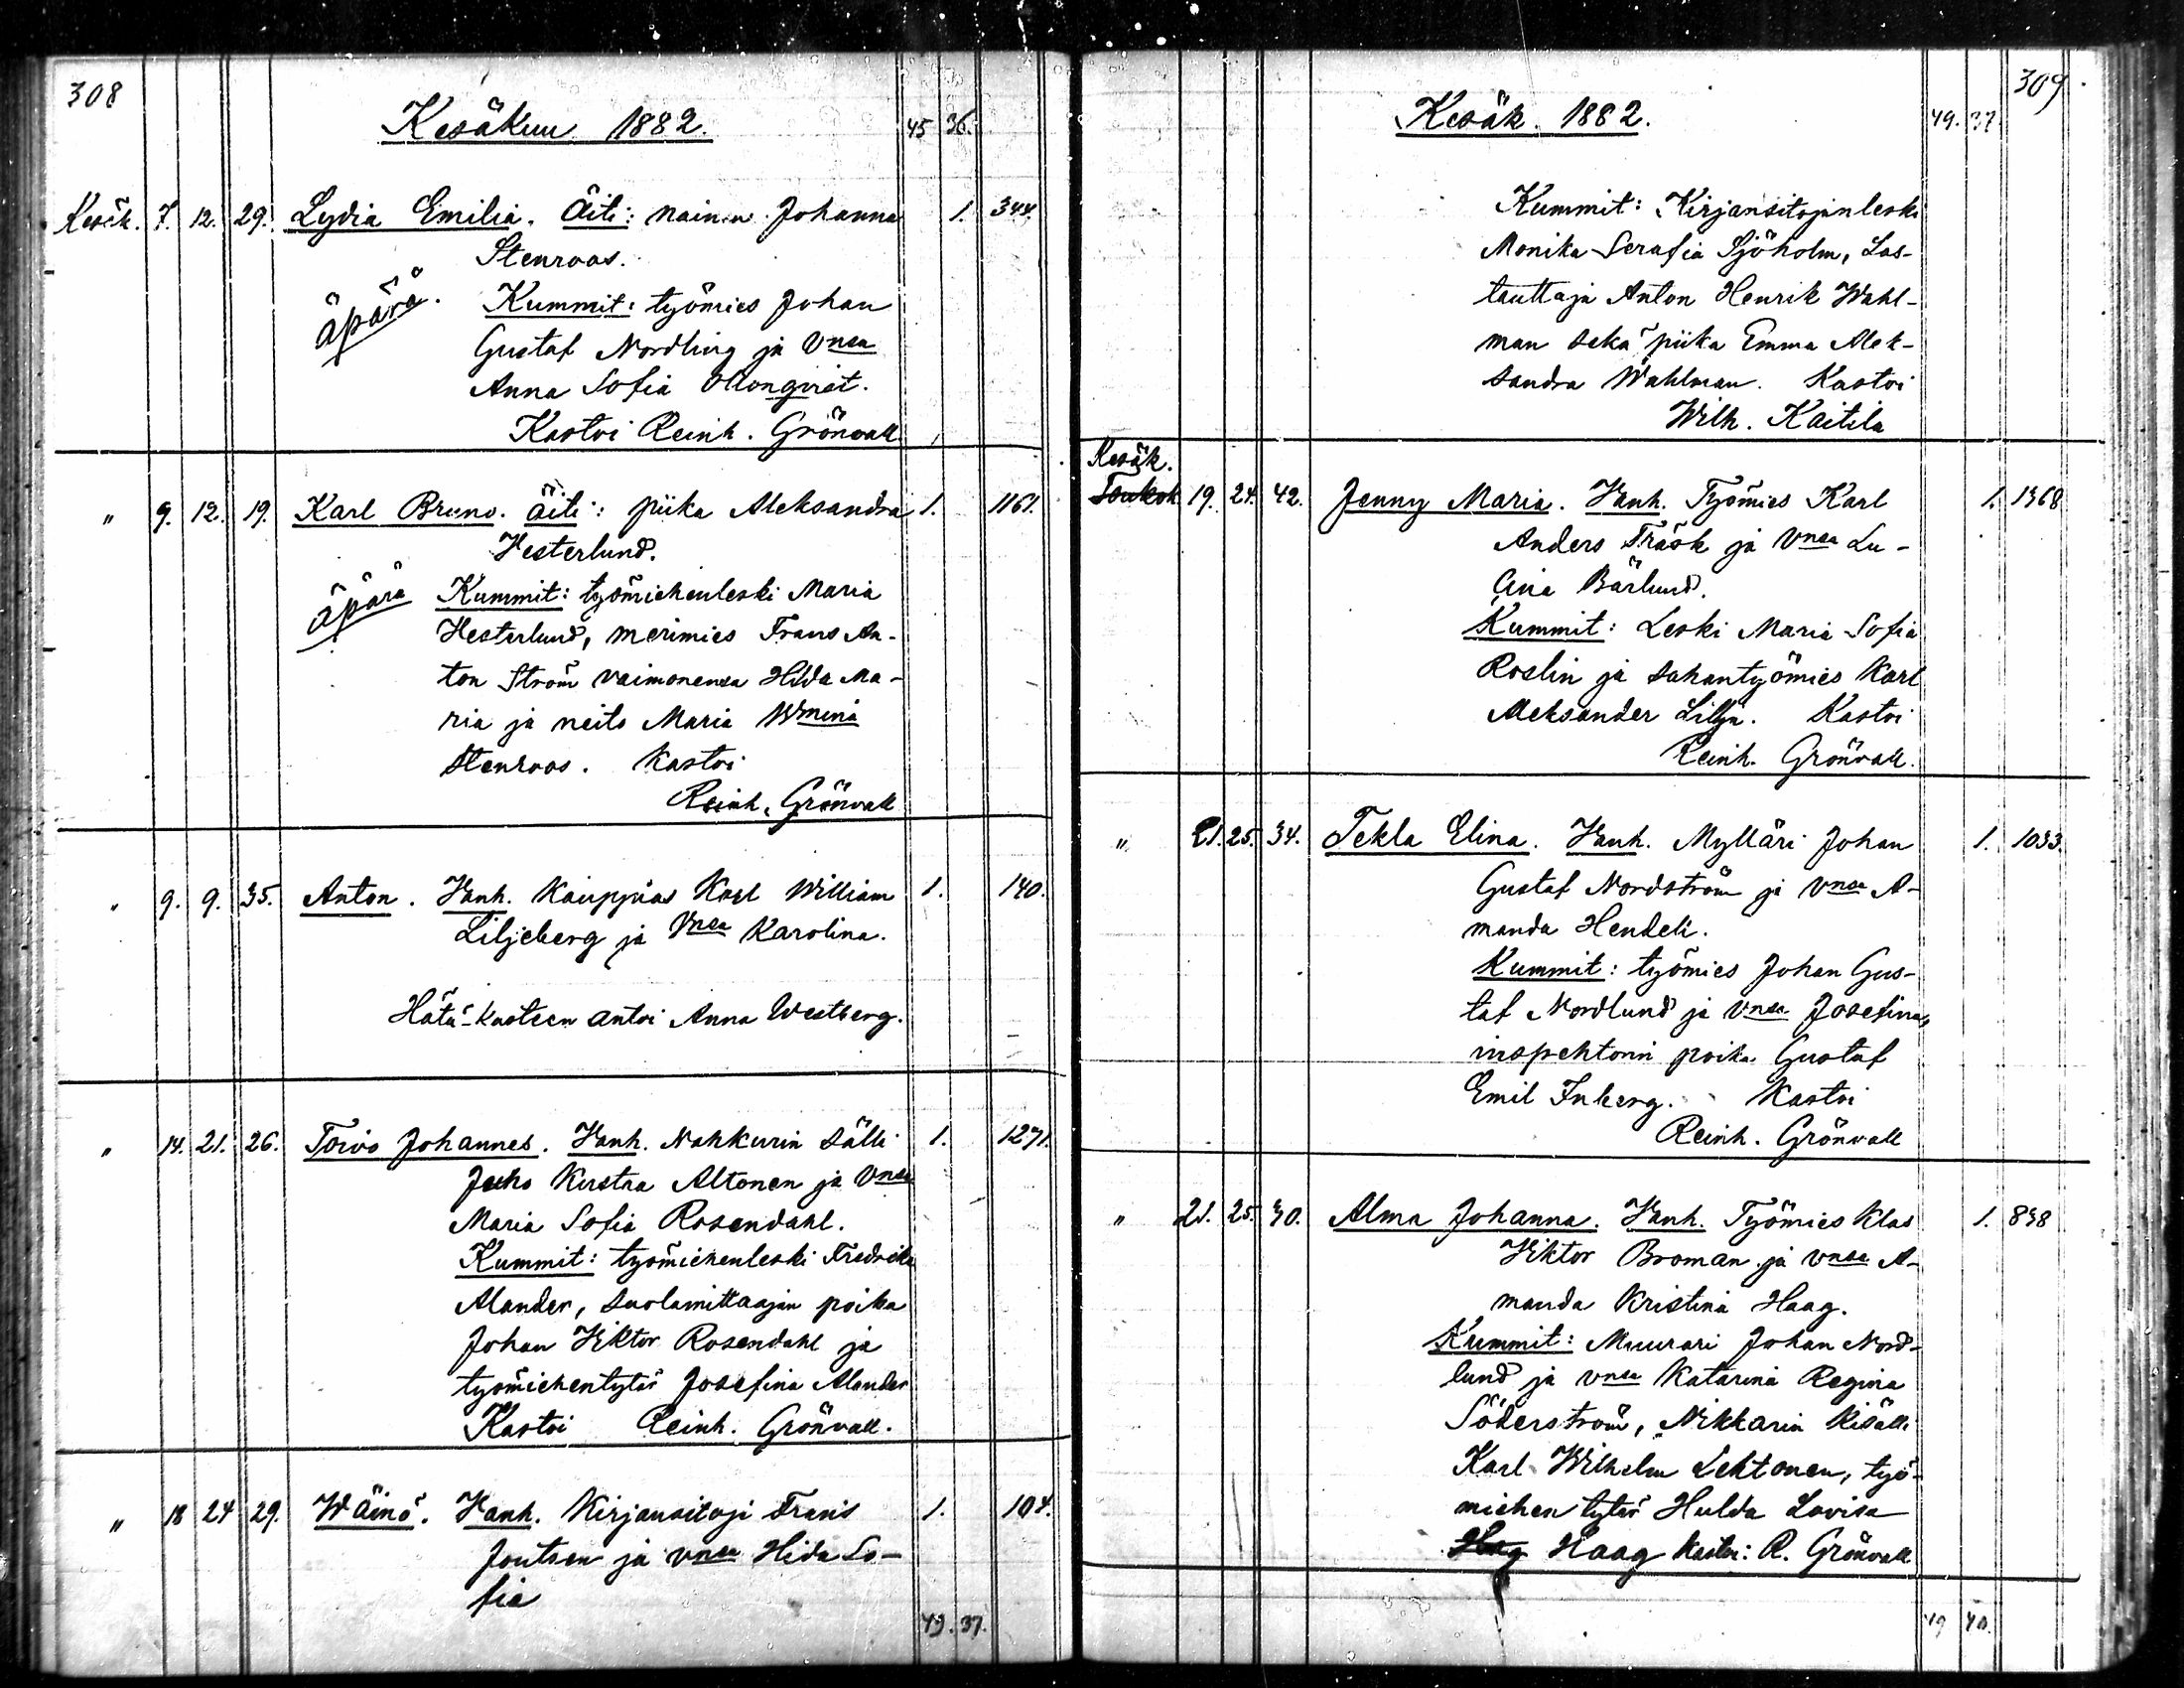 308
Kesäkuu 1882.
45 36.
Kesäk. 7. 12. 29. Lydia Emilia. Äiti: nainen Johanna 1. 344.
Stenroos.
äpärä. Kummit: työmies Johan
Gustaf Nordling ja Vnsa
Anna Sofia
Kastoi Reinh. Grönvall
" 9. 12. 19. Karl Bruno. Äiti: piika Aleksandra 1. 1161.
Hesterlund.
äpärä Kummit: työmiehenleski Maria
Hesterlund, merimies Frans An-
ton Ström vaimonensa Hilda Ma-
ria ja neito Maria Wmina
Stenroos. Kastoi
Reinh. Grönvall
" 9. 9. 35. Anton. Vanh. Kauppias Karl William 1. 140.
Liljeberg ja Vnsa Karolina.
Hätä-kasteen antoi Anna Westberg.
" 14. 21. 26. Toivo Johannes. Vanh. Nahkurin sälli 1. 1271.
Juho Kustaa Altonen ja Vnsa
Maria Sofia Rosendahl.
Kummit: työmiehenleski Fredrika
Alander, suolamittaajan poika
Johan Viktor Rosendahl ja
työmiehentytär Josefina Alander
Kastoi Reinh. Grönvall.
" 18 24 29. Wäinö. Vanh. Kirjansitoja Frans 1. 104.
Joutsen ja vnsa Hida So-
fia
49. 37.
309.
Kesäk. 1882.
49. 37
Kummit: Kirjansitojanleski
Monika Serafia Sjöholm, Las-
tauttaja Anton Henrik Wahl-
man sekä piika Emma Alek-
sandra Wahlman. Kastoi
Wilh. Kaitila
Kesäk.
Toukok 19. 24. 42. Jenny Maria. Vanh. Työmies Karl 1. 1368
Anders Träsk ja Vnsa Lu-
Bärlund.
Kummit: Leski Maria Sofia
Roslin ja sahantyömies Karl
Aleksander Lilja. Kastoi
Reinh. Grönvall.
" 21. 25. 34. Tekla Elina. Vanh. Mylläri Johan 1. 1033.
Gustaf Nordström ja Vnsa A-
manda Hendeli.
Kummit: työmies Johan Gus-
taf Nordlund ja Vnsa Josefina,
inspehtorin poika Gustaf
Emil Inberg. Kastoi
Reinh. Grönvall
" 21. 25. 30. Alma Johanna. Vanh. Työmies Klas 1. 838
Viktor Broman ja vnsa A-
manda Kristina Haag.
Kummit: Muurari Johan Nord-
lund ja vnsa Katarina Regina
Söderström, Nikkarin kisälli
Karl Wilhelm Lehtonen, työ-
miehen tytär Hulda Lovisa
Hag Haag Kastoi: R. Grönvall
49 40.